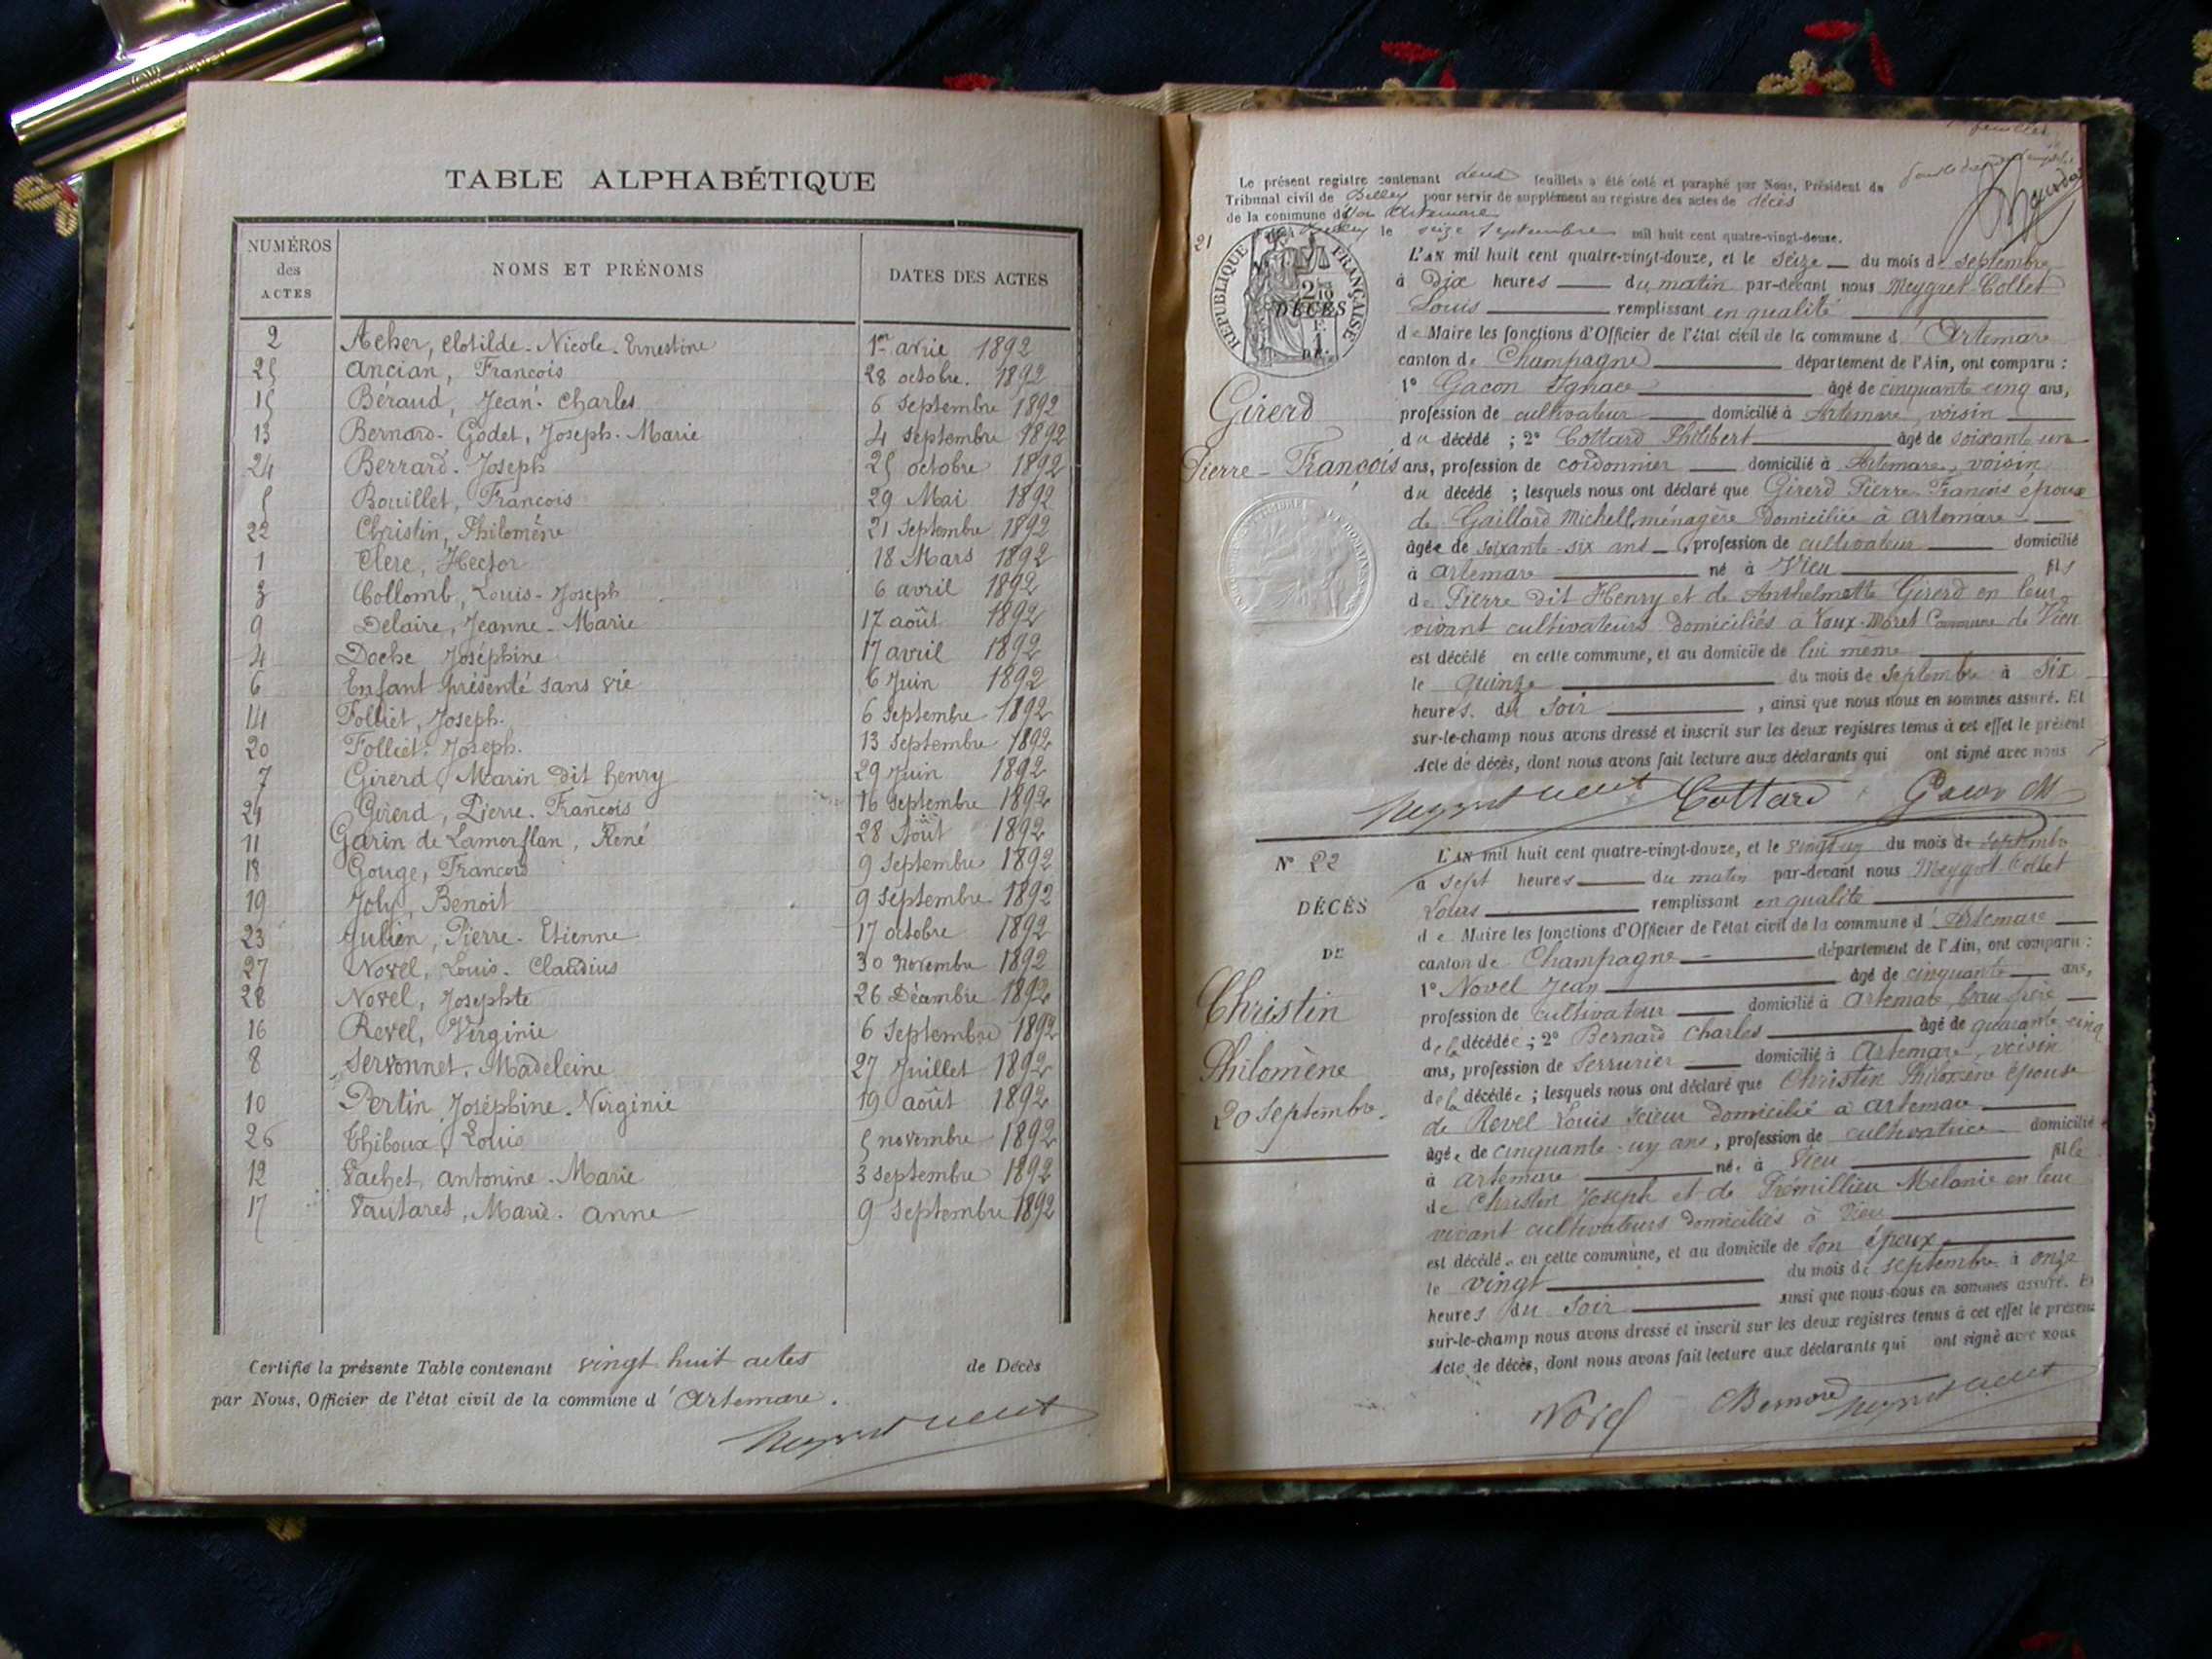 TABLE ALPHABÉTIQUE
NUMÉROS des ACTES NOMS ET PRÉNOMS DATES DES ACTES
2 Acher, Clotilde-Nicole-Ernestine 1er avril 1892
25 Ancian, François 28 octobre 1892
15 Béraud, Jean-Charles 6 Septembre 1892
13 Bernard-Godet, Joseph-Marie 4 Septembre 1892
24 Berrard-Joseph 25 octobre 1892
5 Bouillet, François 29 Mai 1892
22 Christin, Philomène 21 Septembre 1892
1 Clerc, Hector 18 Mars 1892
3 Collomb, Louis-Joseph 6 avril 1892
9 Delaire, Jeanne-Marie 17 août 1892
4 Doche Joséphine 17 avril 1892
6 Enfant présenté sans vie 6 Juin 1892
14 Folliet, Joseph. 6 Septembre 1892
20 Folliet, Joseph. 13 Septembre 1892
7 Girerd, Marin dit henry 29 Juin 1892
21 Girerd, Pierre-François 16 Septembre 1892
11 Garin de Lamorflan, René 28 Août 1892
18 Gouge, François 9 Septembre 1892
19 Joly, Benoit 9 Septembre 1892
23 Julien, Pierre-Etienne 17 octobre 1892
27 Novel, Louis-Claudius 30 novembre 1892
28 Novel, Josephte 26 Décembre 1892
16 Revel, Virginie 6 Septembre 1892
8 Servonnet, Madeleine 27 Juillet 1892
10 Pertin Joséphine-Virginie 19 août 1892
26 Thiboux, Louis 5 novembre 1892
12 Vachet, Antonine-Marie 3 septembre 1892
17 Vautaret, Marie-anne 9 Septembre 1892
Certifié la présente Table contenant vingt huit actes de Décès
par Nous, Officier de l'état civil de la commune d'Artemare.
Le présent registre contenant deux feuillets a été coté et paraphé par Nous, Président du
Tribunal civil de Belley pour servir de supplément au registre des actes de décès
de la commune d'Artemare
Belley le seize septembre mil huit cent quatre-vingt-douze.
21
RÉPUBLIQUE FRANÇAISE
DÉCÈS
Girerd
Pierre-François
L'AN mil huit cent quatre-vingt-douze, et le seize du mois de septembre
à Dix heures du matin par-devant nous Meygret Collet
Louis remplissant en qualité
de Maire les fonctions d'Officier de l'état civil de la commune d'Artemare
canton de Champagne département de l'Ain, ont comparu :
1° Gacon Ignace âgé de cinquante cinq ans,
profession de cultivateur domicilié à Artemare, voisin
du décédé ; 2° Cottard Philibert âgé de soixante un
ans, profession de cordonnier domicilié à Artemare, voisin
du décédé ; lesquels nous ont déclaré que Girerd Pierre François époux
de Gaillard Michelle, ménagère domiciliée à Artemare
âgée de soixante-six ans, profession de cultivateur domicilié
à Artemare né à Vieu fils
de Pierre dit Henry et de Anthelmette Girerd en leur
vivant cultivateurs domiciliés à Vaux-Moret Commune de Vieu
est décédé en cette commune, et au domicile de lui même
le quinze du mois de Septembre à Six
heures du Soir, ainsi que nous nous en sommes assuré. Et
sur-le-champ nous avons dressé et inscrit sur les deux registres tenus à cet effet le présent
Acte de décès, dont nous avons fait lecture aux déclarants qui ont signé avec nous
Cottard Gacon
N° 22
DÉCÈS
DE
Christin
Philomène
20 septembre.
L'AN mil huit cent quatre-vingt-douze, et le vingt un du mois de septembre
à sept heures du matin par-devant nous Meygret Collet
Louis remplissant en qualité
de Maire les fonctions d'Officier de l'état civil de la commune d'Artemare
canton de Champagne département de l'Ain, ont comparu :
1° Novel Jean âgé de cinquante ans,
profession de cultivateur domicilié à Artemare, beau frère
de la décédée ; 2° Bernard Charles âgé de quarante cinq
ans, profession de serrurier domicilié à Artemare, voisin
de la décédée ; lesquels nous ont déclaré que Christin Philomène épouse
de Revel Louis scieur domicilié à Artemare
âgée de cinquante-un ans, profession de cultivatrice domiciliée
à Artemare née à Vieu fille
de Christin Joseph et de Prémillieu Mélanie en leur
vivant cultivateurs domiciliés à Vieu
est décédée en cette commune, et au domicile de son époux
le vingt du mois de septembre à onze
heures du Soir ainsi que nous nous en sommes assuré. Et
sur-le-champ nous avons dressé et inscrit sur les deux registres tenus à cet effet le présent
Acte de décès, dont nous avons fait lecture aux déclarants qui ont signé avec nous
Novel CBernard